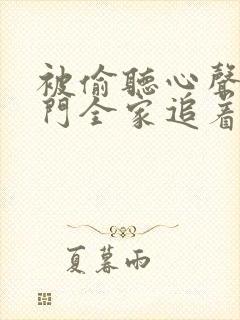 被偷聽心聲
門全家追着
夏暮雨